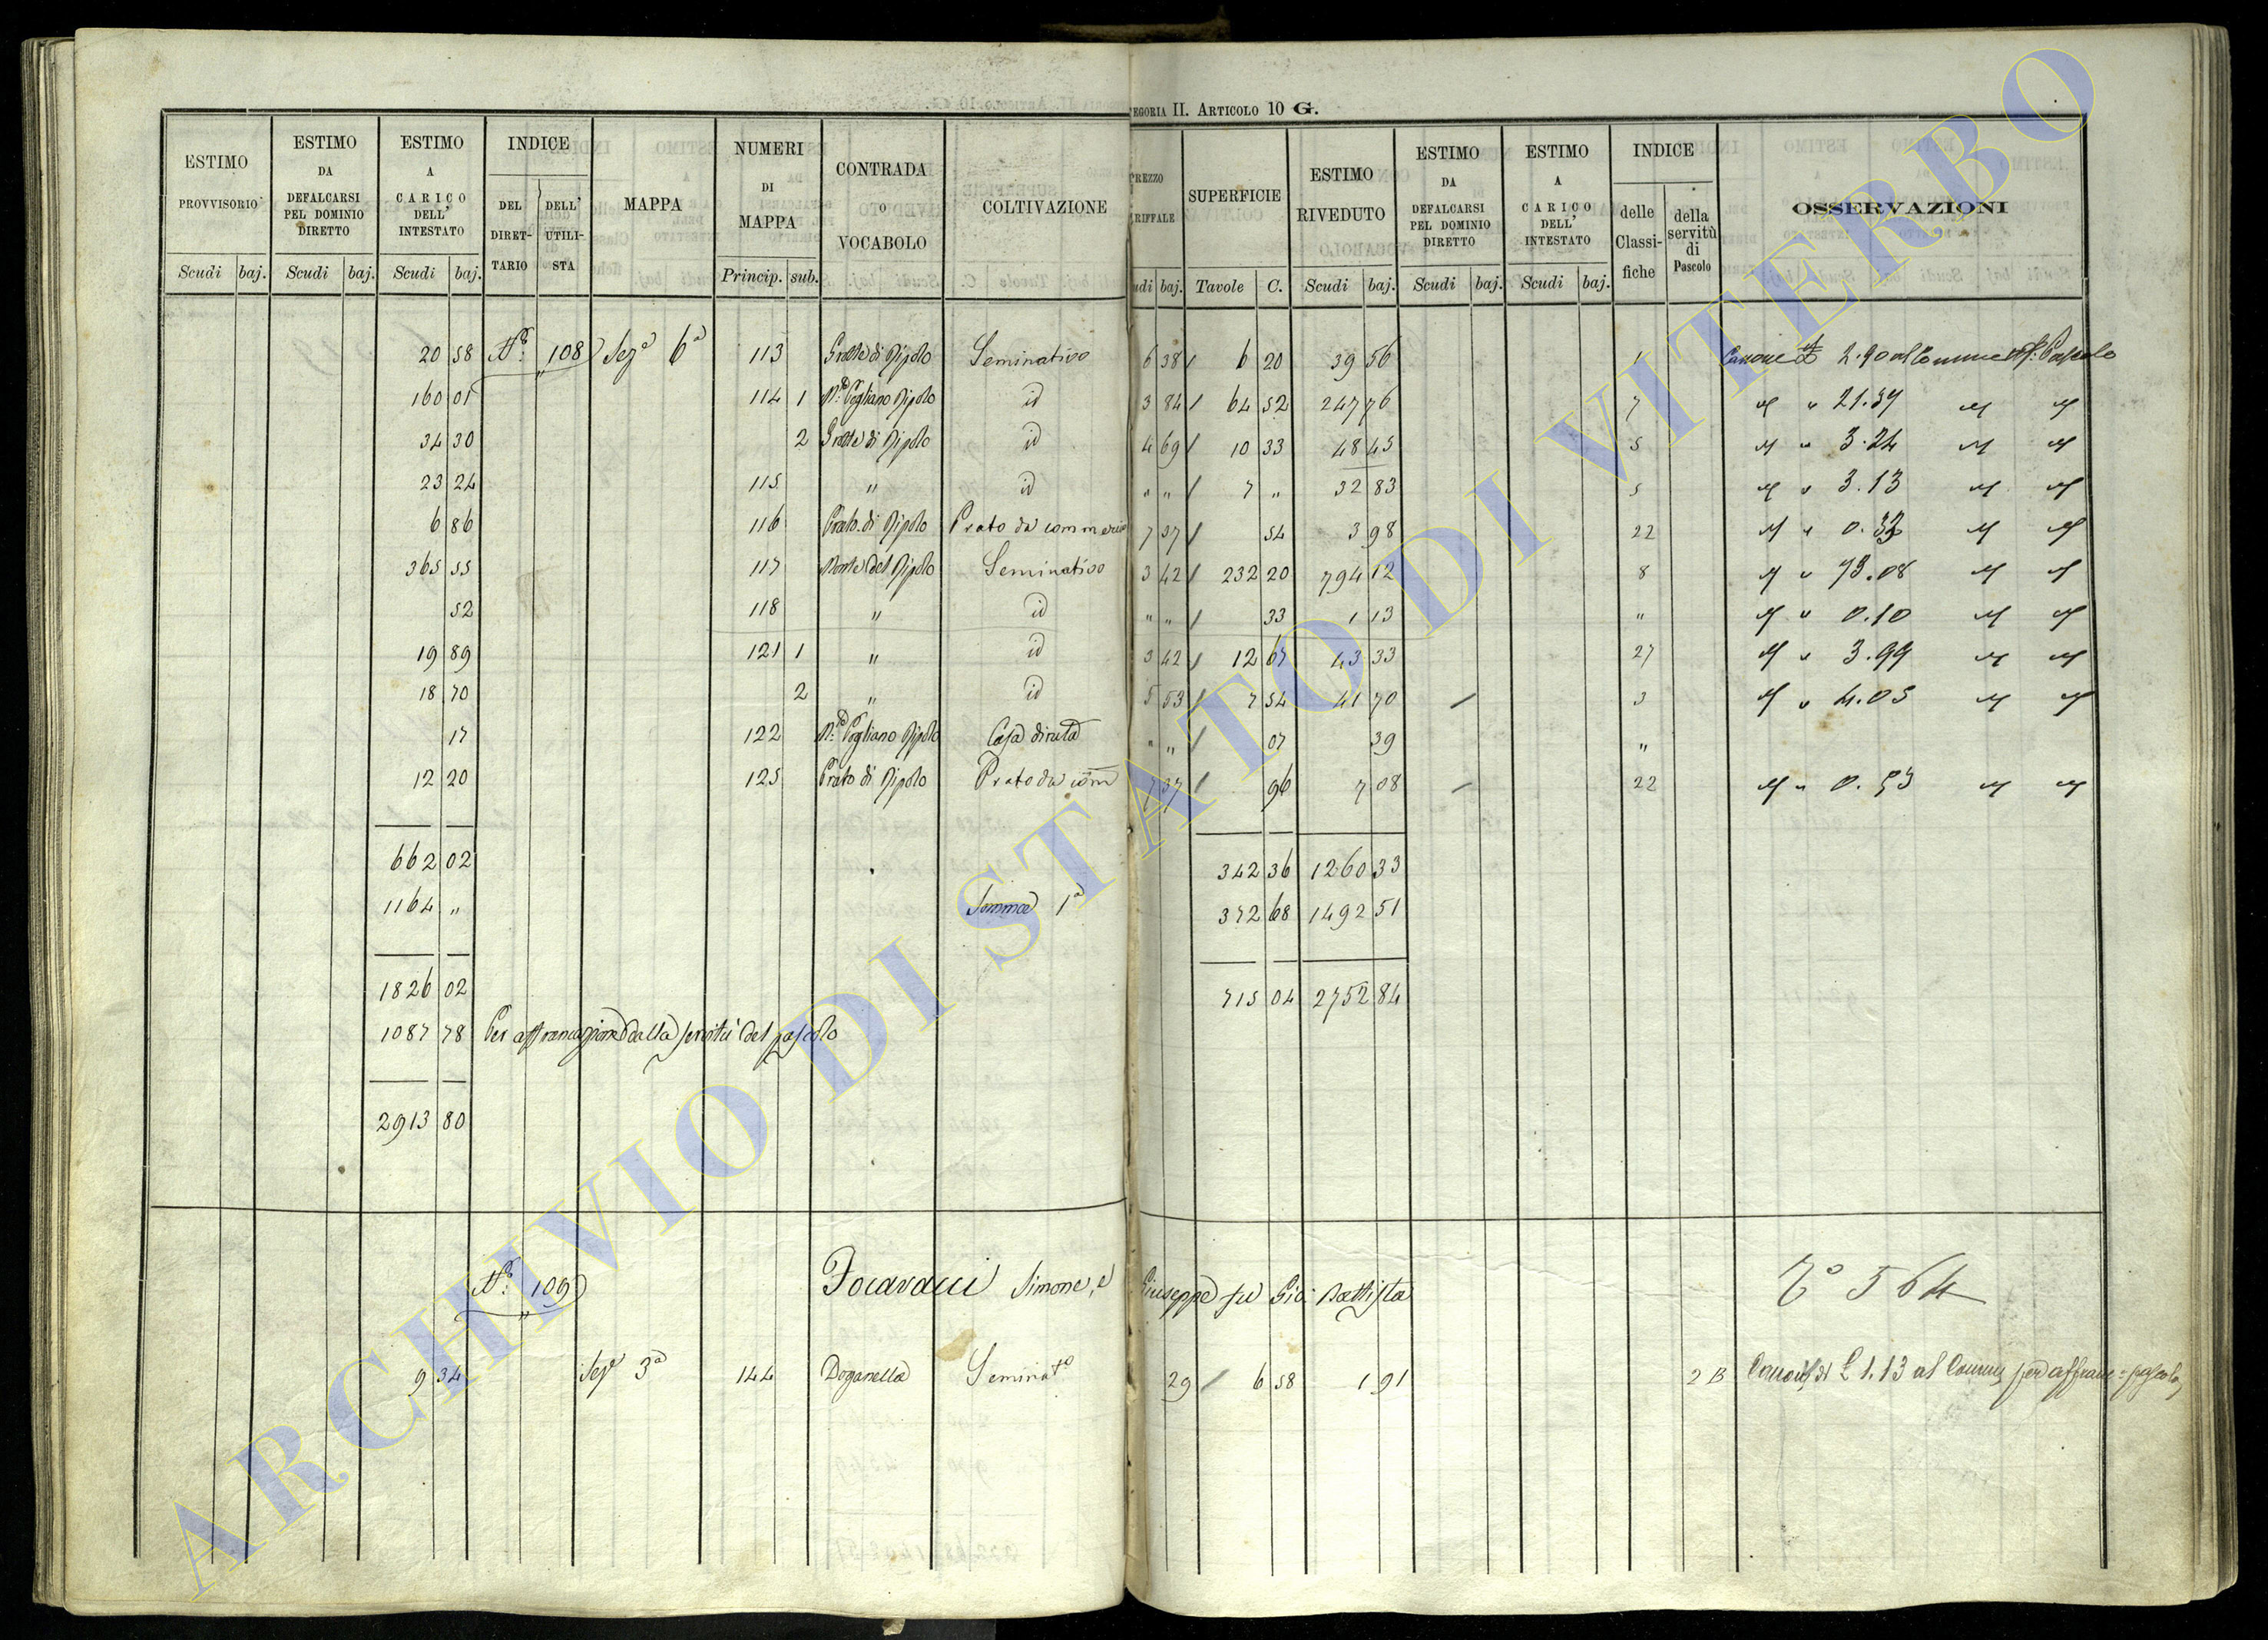 CATEGORIA II. ARTICOLO 10 G.
ESTIMO PROVVISORIO Scudi baj. ESTIMO DA DEFALCARSI PEL DOMINIO DIRETTO Scudi baj. ESTIMO A CARICO DELL' INTESTATO Scudi baj. INDICE DEL DIRETTARIO DELL' UTILISTA MAPPA NUMERI DI MAPPA Princip. sub. CONTRADA O VOCABOLO COLTIVAZIONE
PREZZO TARIFFALE Scudi baj. SUPERFICIE Tavole C. ESTIMO RIVEDUTO Scudi baj. ESTIMO DA DEFALCARSI PEL DOMINIO DIRETTO Scudi baj. ESTIMO A CARICO DELL' INTESTATO Scudi baj. INDICE delle Classifiche della servitù di Pascolo OSSERVAZIONI
20 58 N.° 108 Sez.e 6a 113 Grotte di Ripolo Seminativo 6 38 / 6 20 39 56 1 Canone di 2.90 al Comune Pascolo
160 01 114 1 Pogliano Ripolo id 3 84 / 64 52 247 76 7 " " 21.37 " "
34 30 2 Grotte di Ripolo id 4 69 / 10 33 48 45 5 " " 3.24 " "
23 24 115 " id " " / 7 " 32 83 5 " " 3.13 " "
6 86 116 Prato di Ripolo Prato da commercio 7 37 / 54 3 98 22 " " " "
365 55 117 Monte del Ripolo Seminativo 3 42 / 232 20 794 12 8 " " 73.08 " "
52 118 " id " " / 33 1 13 " " " 0.10 " "
19 89 121 1 " id 3 42 / 12 67 43 33 27 " " 3.99 " "
18 70 2 " id 5 53 / 7 54 41 70 / 3 " " 4.05 " "
17 122 Pogliano Ripolo Casa diruta " " / 07 39 "
12 20 125 Prato di Ripolo Prato da com 7 37 / 96 7 08 / 22 " " 0.53 " "
662 02 342 36 1260 33
1164 " Somma 1a 372 68 1492 51
1826 02 715 04 2752 84
1087 78 Per affrancazione dalla servitù del pascolo
2913 80
N.° 109 Focaracci Simone, e Giuseppe fu Gio: Battista 564
9 34 Sez.e 3a 144 Doganella Seminat.o 29 / 6 58 1 91 2 B Canone di £ 1.13 al Comune per affranc. pascolo
ARCHIVIO DI STATO DI VITERBO